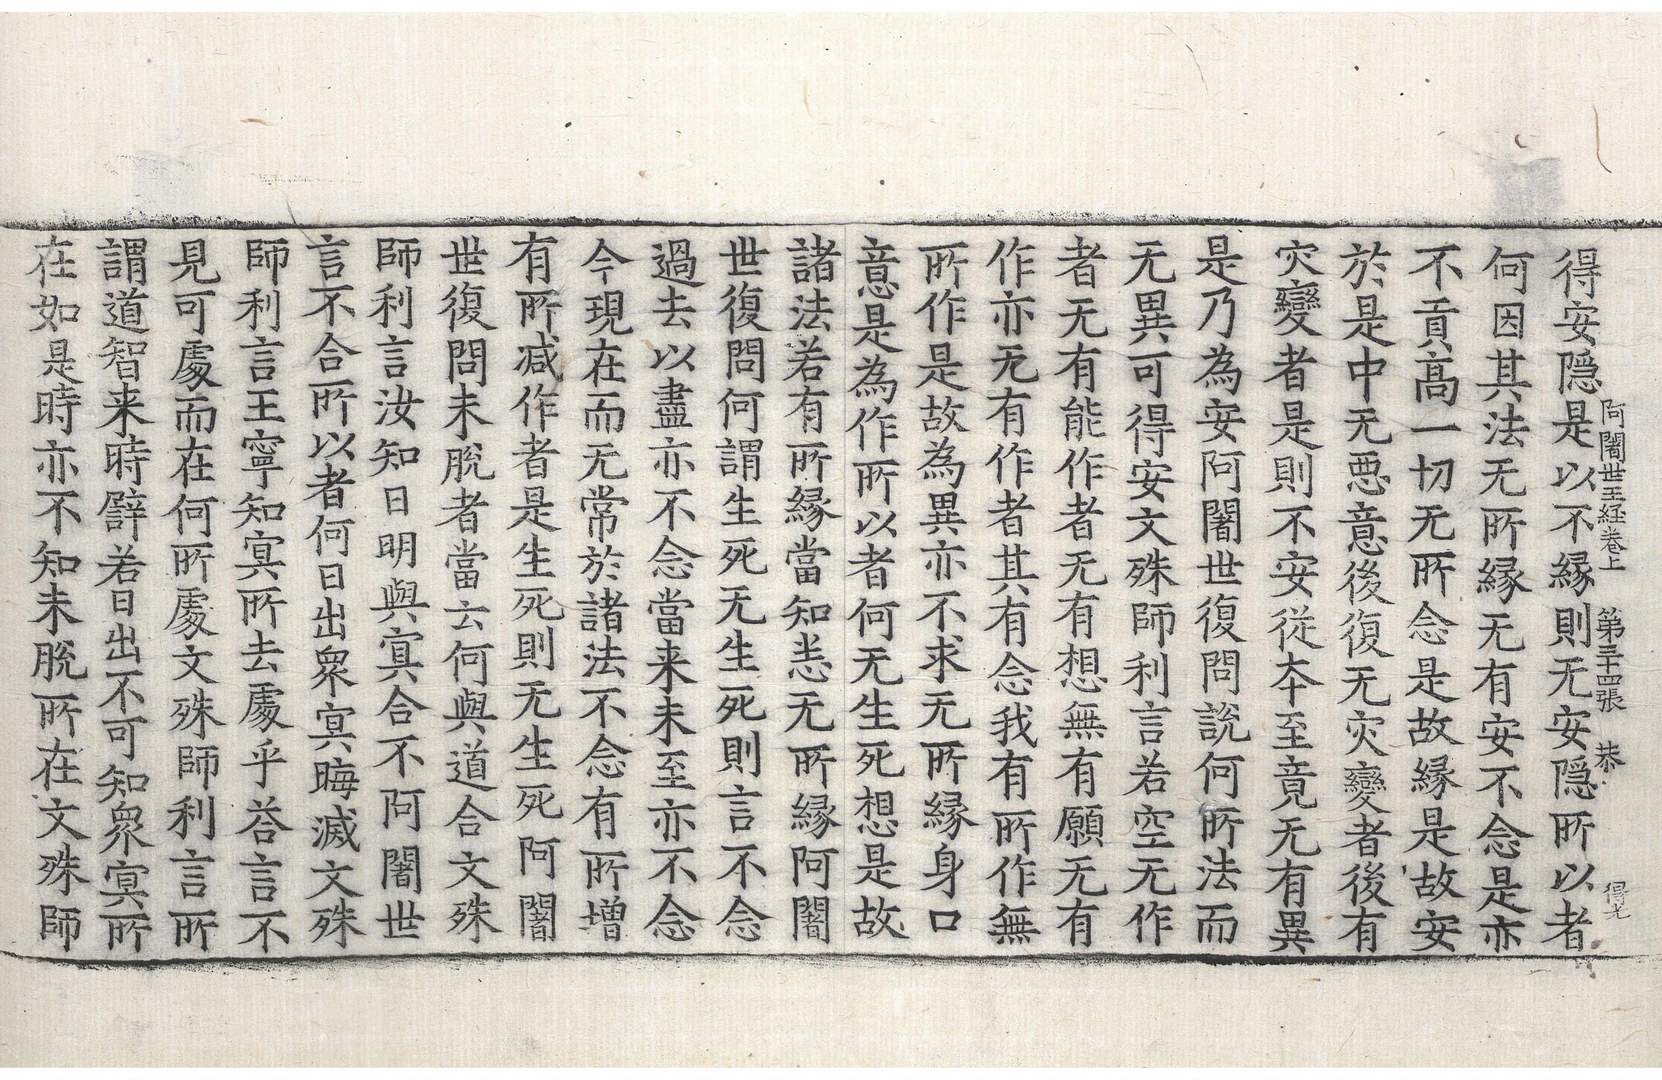 阿闍世王経卷上 第三十四張 恭 得光
得安隱是以不縁則无安隱所以者
何因其法无所縁无有安不念是亦
不貢髙一切无所念是故縁是故安
於是中无惡意後復无灾變者後有
灾變者是則不安從夲至竟无有異
是乃為安阿闍世復問說何所法而
无異可得安文殊師利言若空无作
者无有能作者无有想無有願无有
作亦无有作者其有念我有所作無
所作是故為異亦不求无所縁身口
意是為作所以者何无生死想是故
諸法若有所縁當知悉无所縁阿闍
世復問何謂生死无生死則言不念
過去以盡亦不念當来未至亦不念
今現在而无常於諸法不念有所增
有所减作者是生死則无生死阿闍
世復問未脫者當云何與道合文殊
師利言汝知日明與冥合不阿闍世
言不合所以者何日出衆冥晦滅文殊
師利言王寧知冥所去處乎荅言不
見可處而在何所處文殊師利言所
謂道智来時譬若日出不可知衆冥所
在如是時亦不知未脫所在文殊師